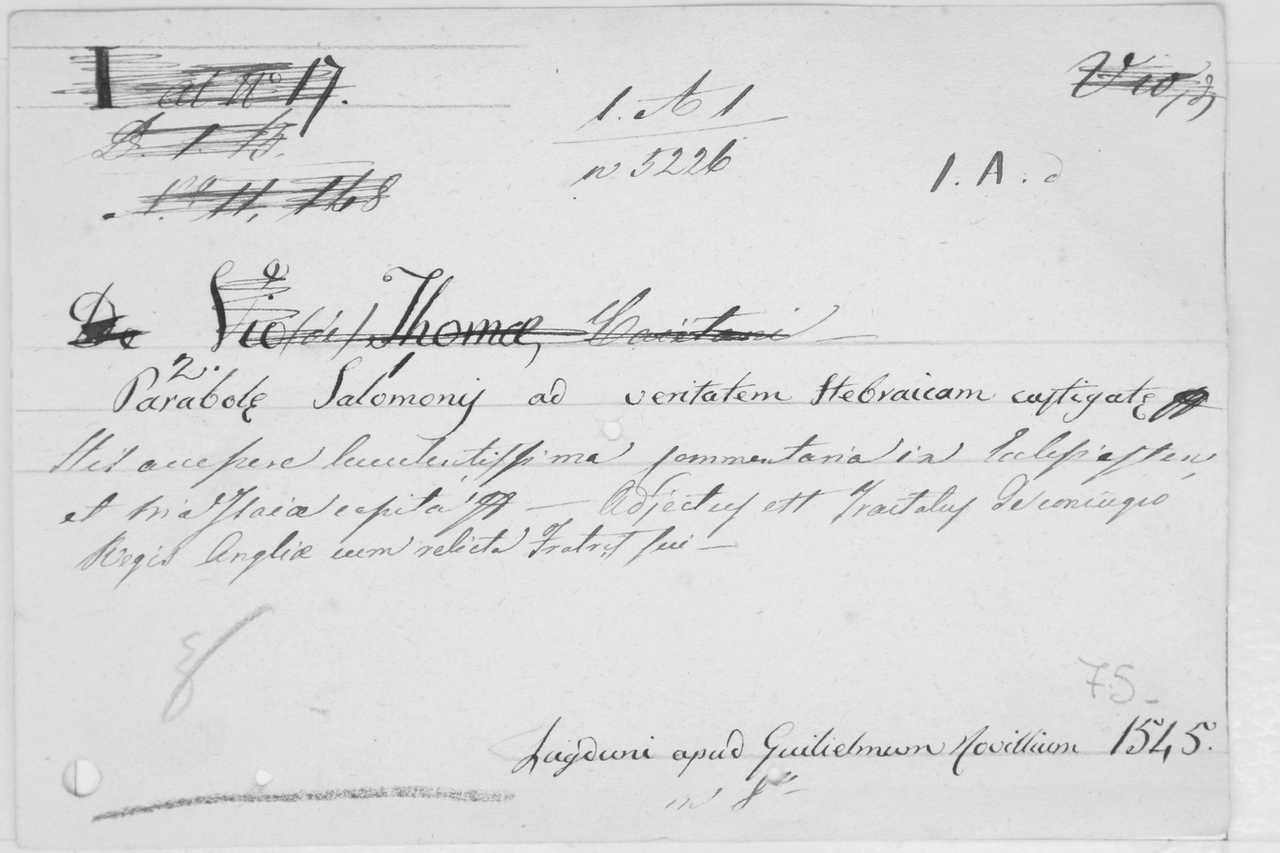 I at N° 17.
D. 1. 15.
1. A 1
n 5226
Vio,
1. A. d
11, 168
De Vio (di) Thomæ, Caietani
2. 1
Parabolę Salomonis ad veritatem Hebraicam castigatę
His accepere luculentissima commentaria in Eclesiasten,
et tria Isaiæ capita — Adjectus est Tractatus de coniugio
Regis Angliæ cum relicta Fratris sui —
75-
Lugduni apud Guilielmum Rovillium 1545.
in 8°